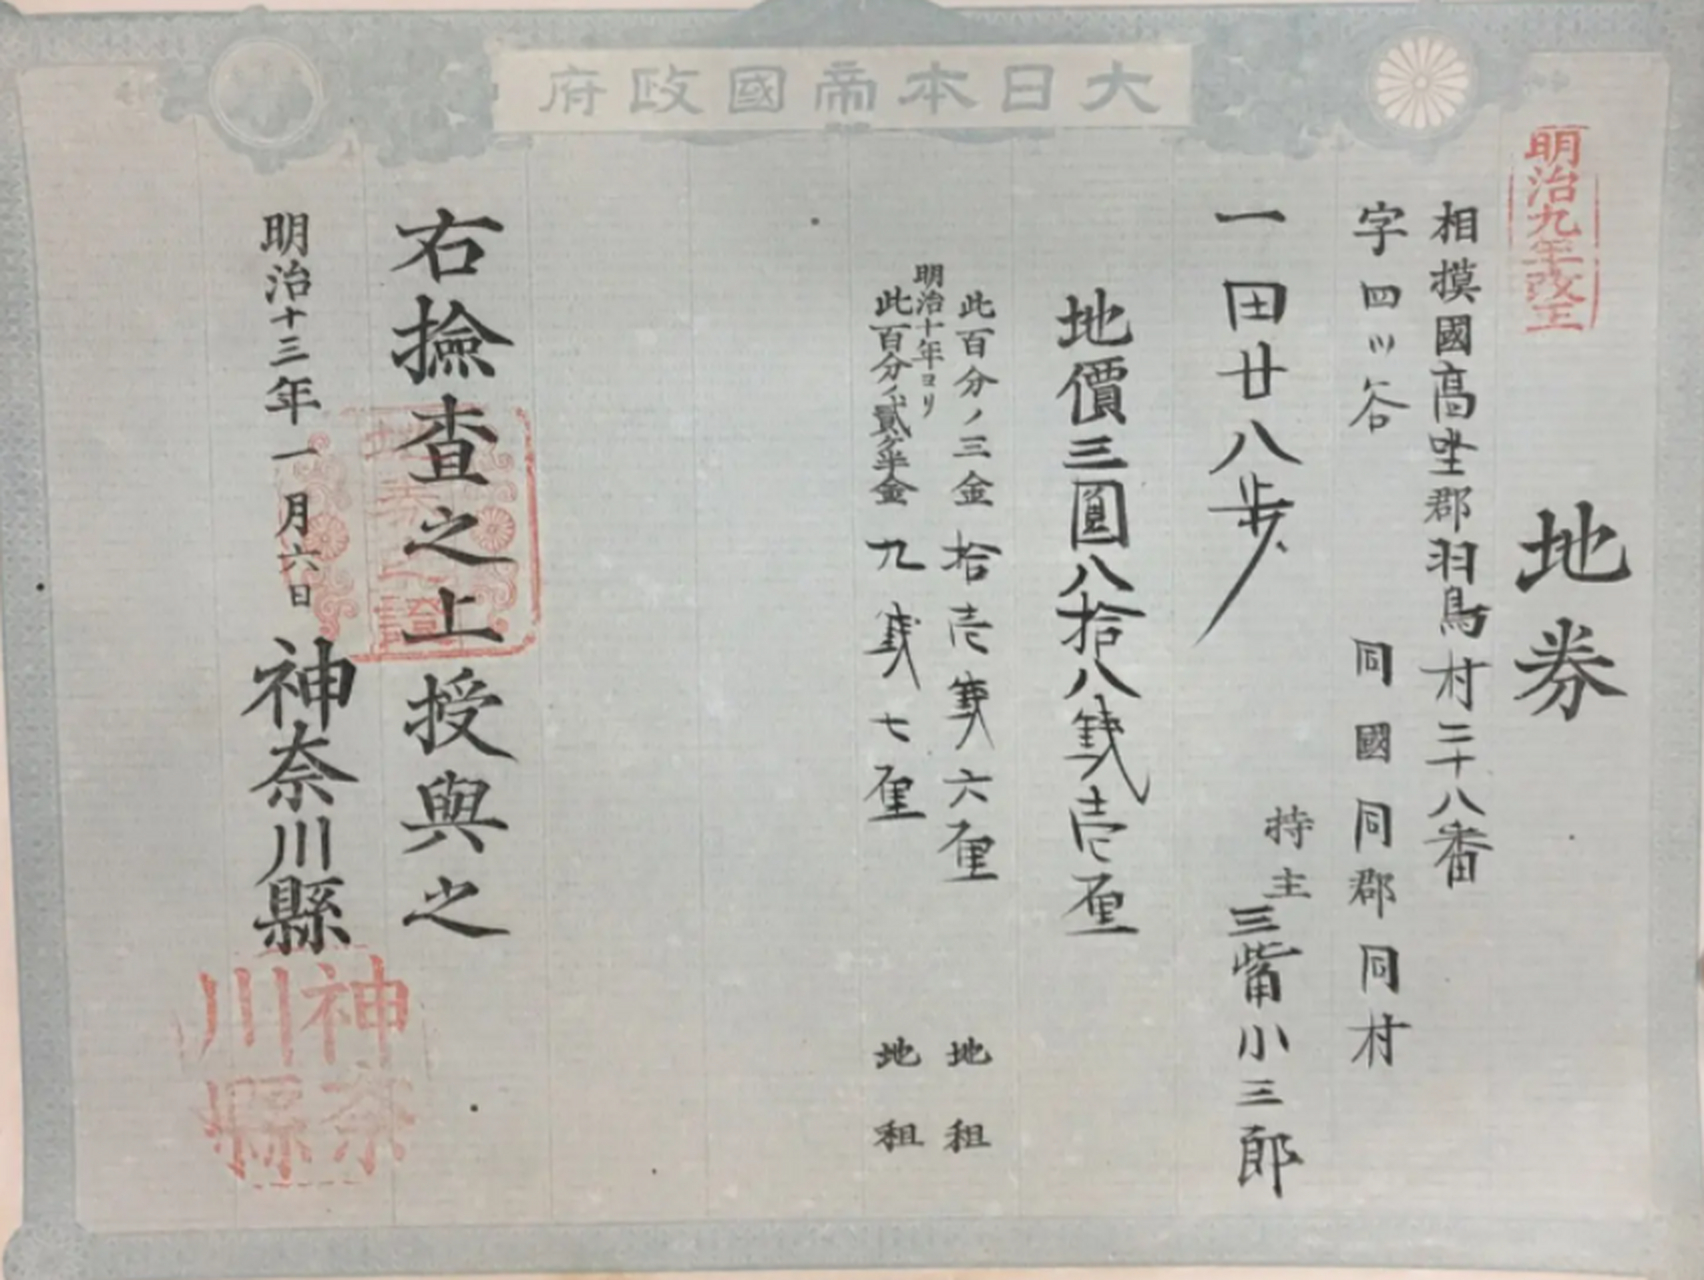 大日本帝國政府
明治九年改正
地券
相摸國高座郡羽鳥村三十八番
字四ツ谷
同國同郡同村
一田廿八歩
持主三觜小三郎
地價三圓八拾八錢壱厘
此百分ノ三金拾壱錢六厘 地租
明治十年ヨリ
此百分ノ貳ケ半金九錢七厘 地租
右撿査之上授與之
明治十三年一月六日 神奈川縣
地券之證
神奈川縣